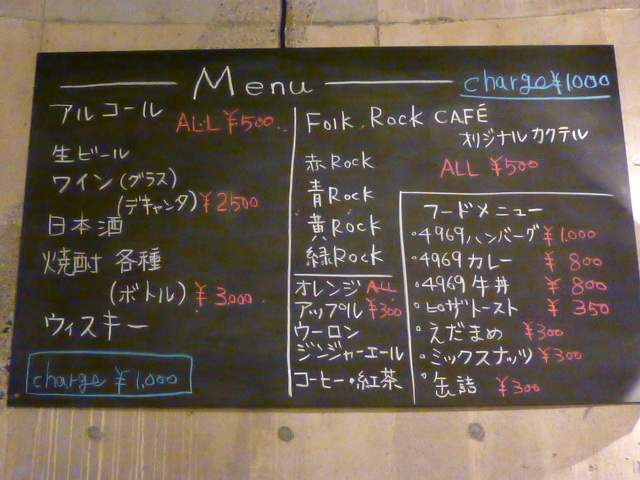 Menu
charge ¥1000
アルコール
ALL ¥500
生ビール
ワイン(グラス)
(デキャンタ) ¥2,500
日本酒
焼酎 各種
(ボトル) ¥3,000
ウィスキー
charge ¥1,000
Folk Rock CAFÉ
オリジナルカクテル
ALL ¥500
赤Rock
青Rock
黄Rock
緑Rock
オレンジ ALL
アップル ¥300
ウーロン
ジンジャーエール
コーヒー・紅茶
フードメニュー
・4969ハンバーグ ¥1,000
・4969カレー ¥800
・4969牛丼 ¥800
・ピザトースト ¥350
・えだまめ ¥300
・ミックスナッツ ¥300
・缶詰 ¥300